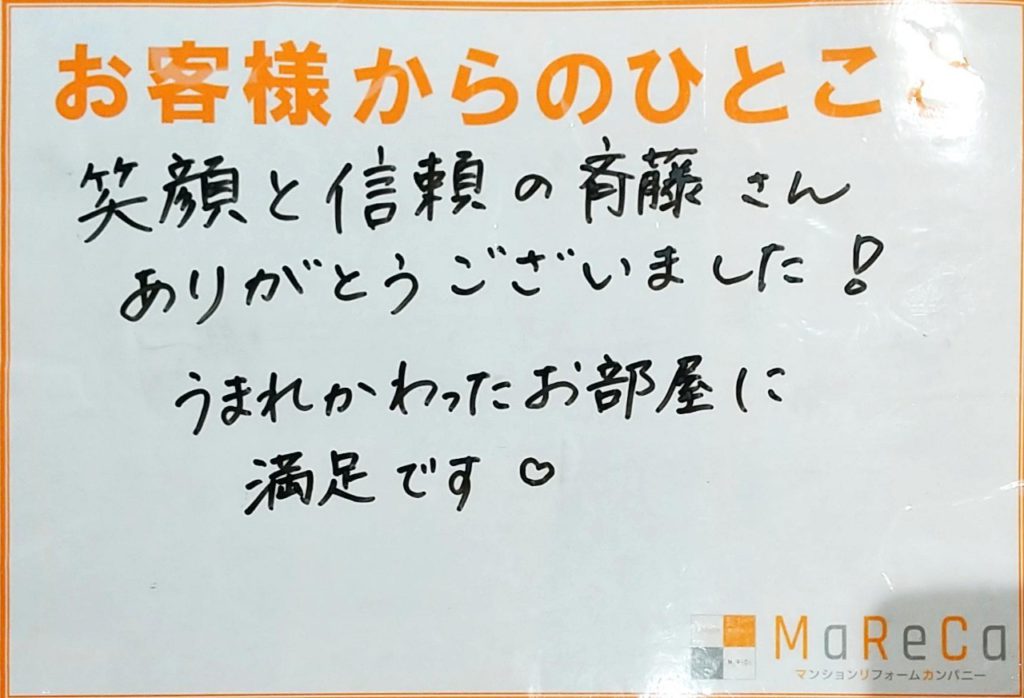 お客様からのひとこと
笑顔と信頼の斉藤さん
ありがとうございました!
うまれかわったお部屋に
満足です♡
MaReCa
マンションリフォームカンパニー